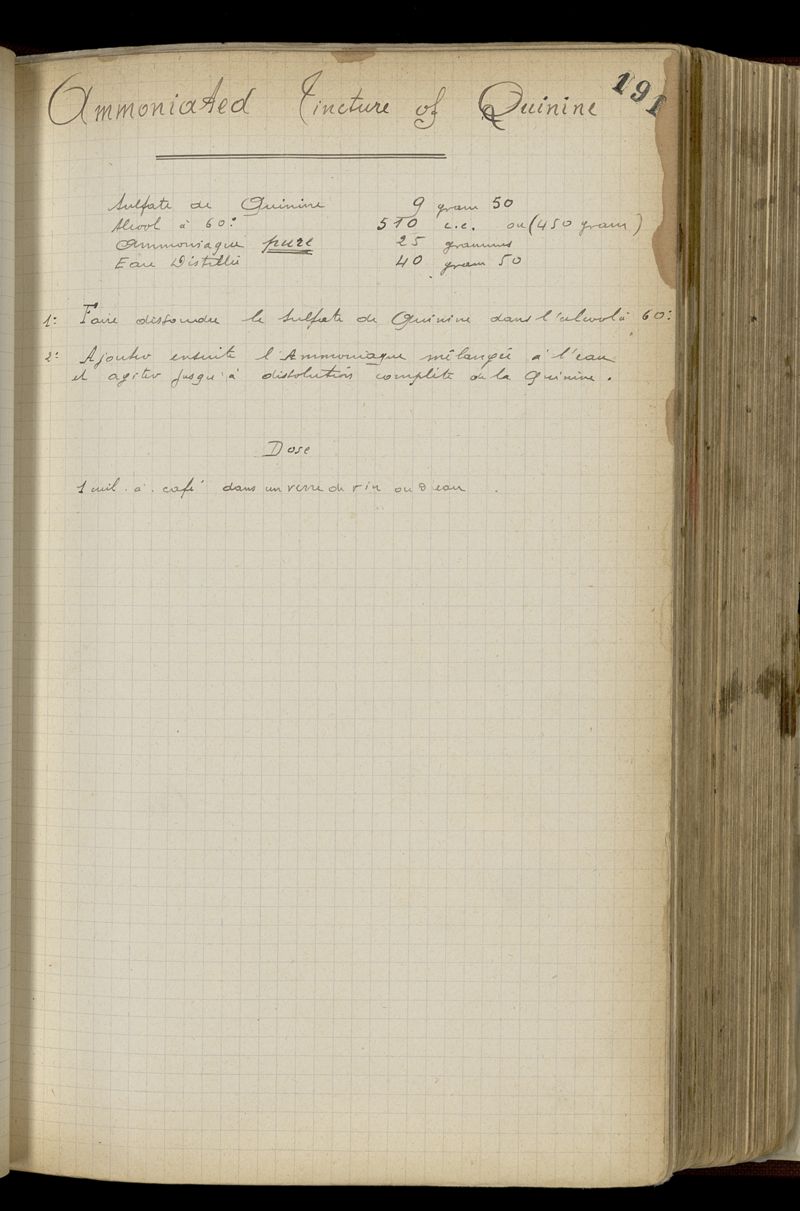 191
Ammoniated Tincture of Quinine
Sulfate de Quinine 9 gram 50
Alcool à 60° 510 c.c. ou (450 gram)
Ammoniaque pure 25 grammes
Eau Distillée 40 gram 50
1° Faire dissoudre le Sulfate de Quinine dans l'alcool à 60°
2° Ajouter ensuite l'Ammoniaque mélangée à l'eau
et agiter jusqu'à dissolution complète de la Quinine.
Dose
1 cuil. à. café dans un verre de vin ou d eau.